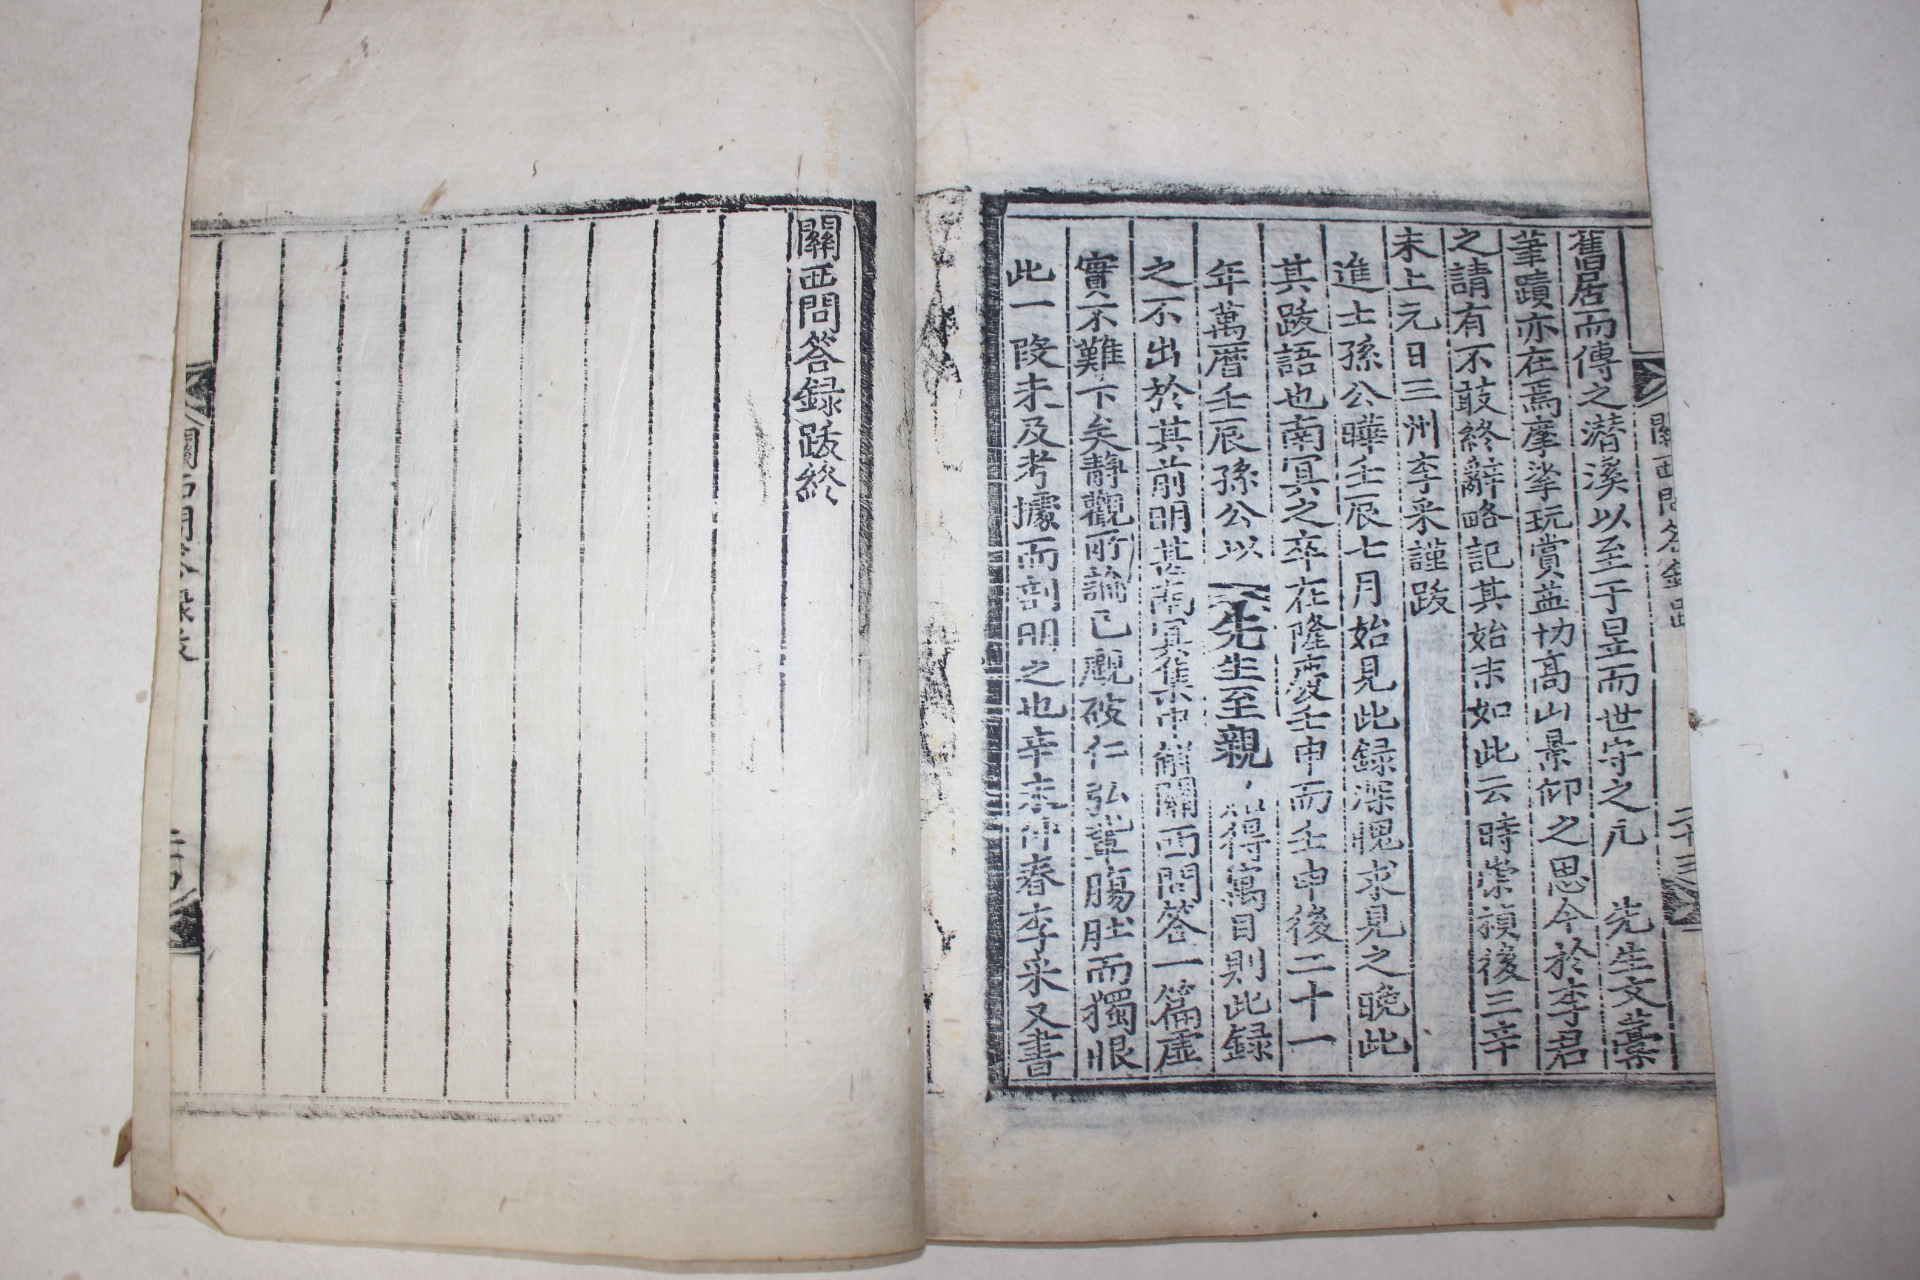 舊居而傳之潜溪以至于昰而世守之凢　先生文藁
筆蹟亦在焉摩挲玩賞益切高山景仰之思今於李君
之請有不敢終辭略記其始末如此云時崇禎後三辛
未上元日三州李采謹跋
進士孫公曄壬辰七月始見此録深愧求見之晩此
其跋語也南冥之卒在隆慶壬申而壬申後二十一
年萬曆壬辰孫公以　先生至親得寓目則此録
之不出於其前明甚南冥集中解關西問答一篇虛
實不難下矣靜觀所論已覰破仁弘輩膓肚而獨恨
此一段未及考據而剖明之也辛未仲春李采又書
關西問答録跋
二十三
關西問答録跋終
關西問答録跋
二十四